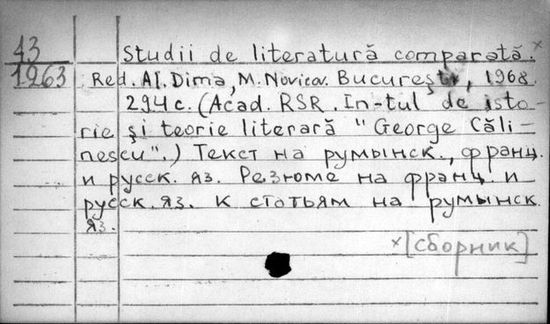 43 Studii de literatură comparată. x
1963 Red. Al. Dima, M. Novicov. Bucureşti, 1968.
294 c. (Acad. RSR. In-tul de isto-
rie şi teorie literară "George Căli-
nescu".) Текст на румынск., франц.
и русск. яз. Резюме на франц. и
русск. яз. к стотьям на румынск.
яз.
x [сборник]